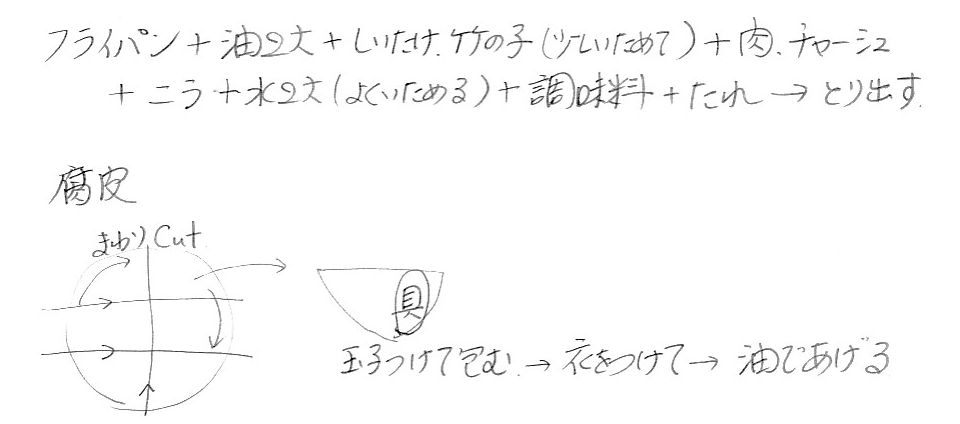 フライパン＋油2大＋しいたけ、竹の子（少しいためて）＋肉、チャーシュ
＋ニラ＋水2大（よくいためる）＋調味料＋たれ→とり出す
腐皮
まわりCut
具
玉子つけて包む→衣をつけて→油であげる